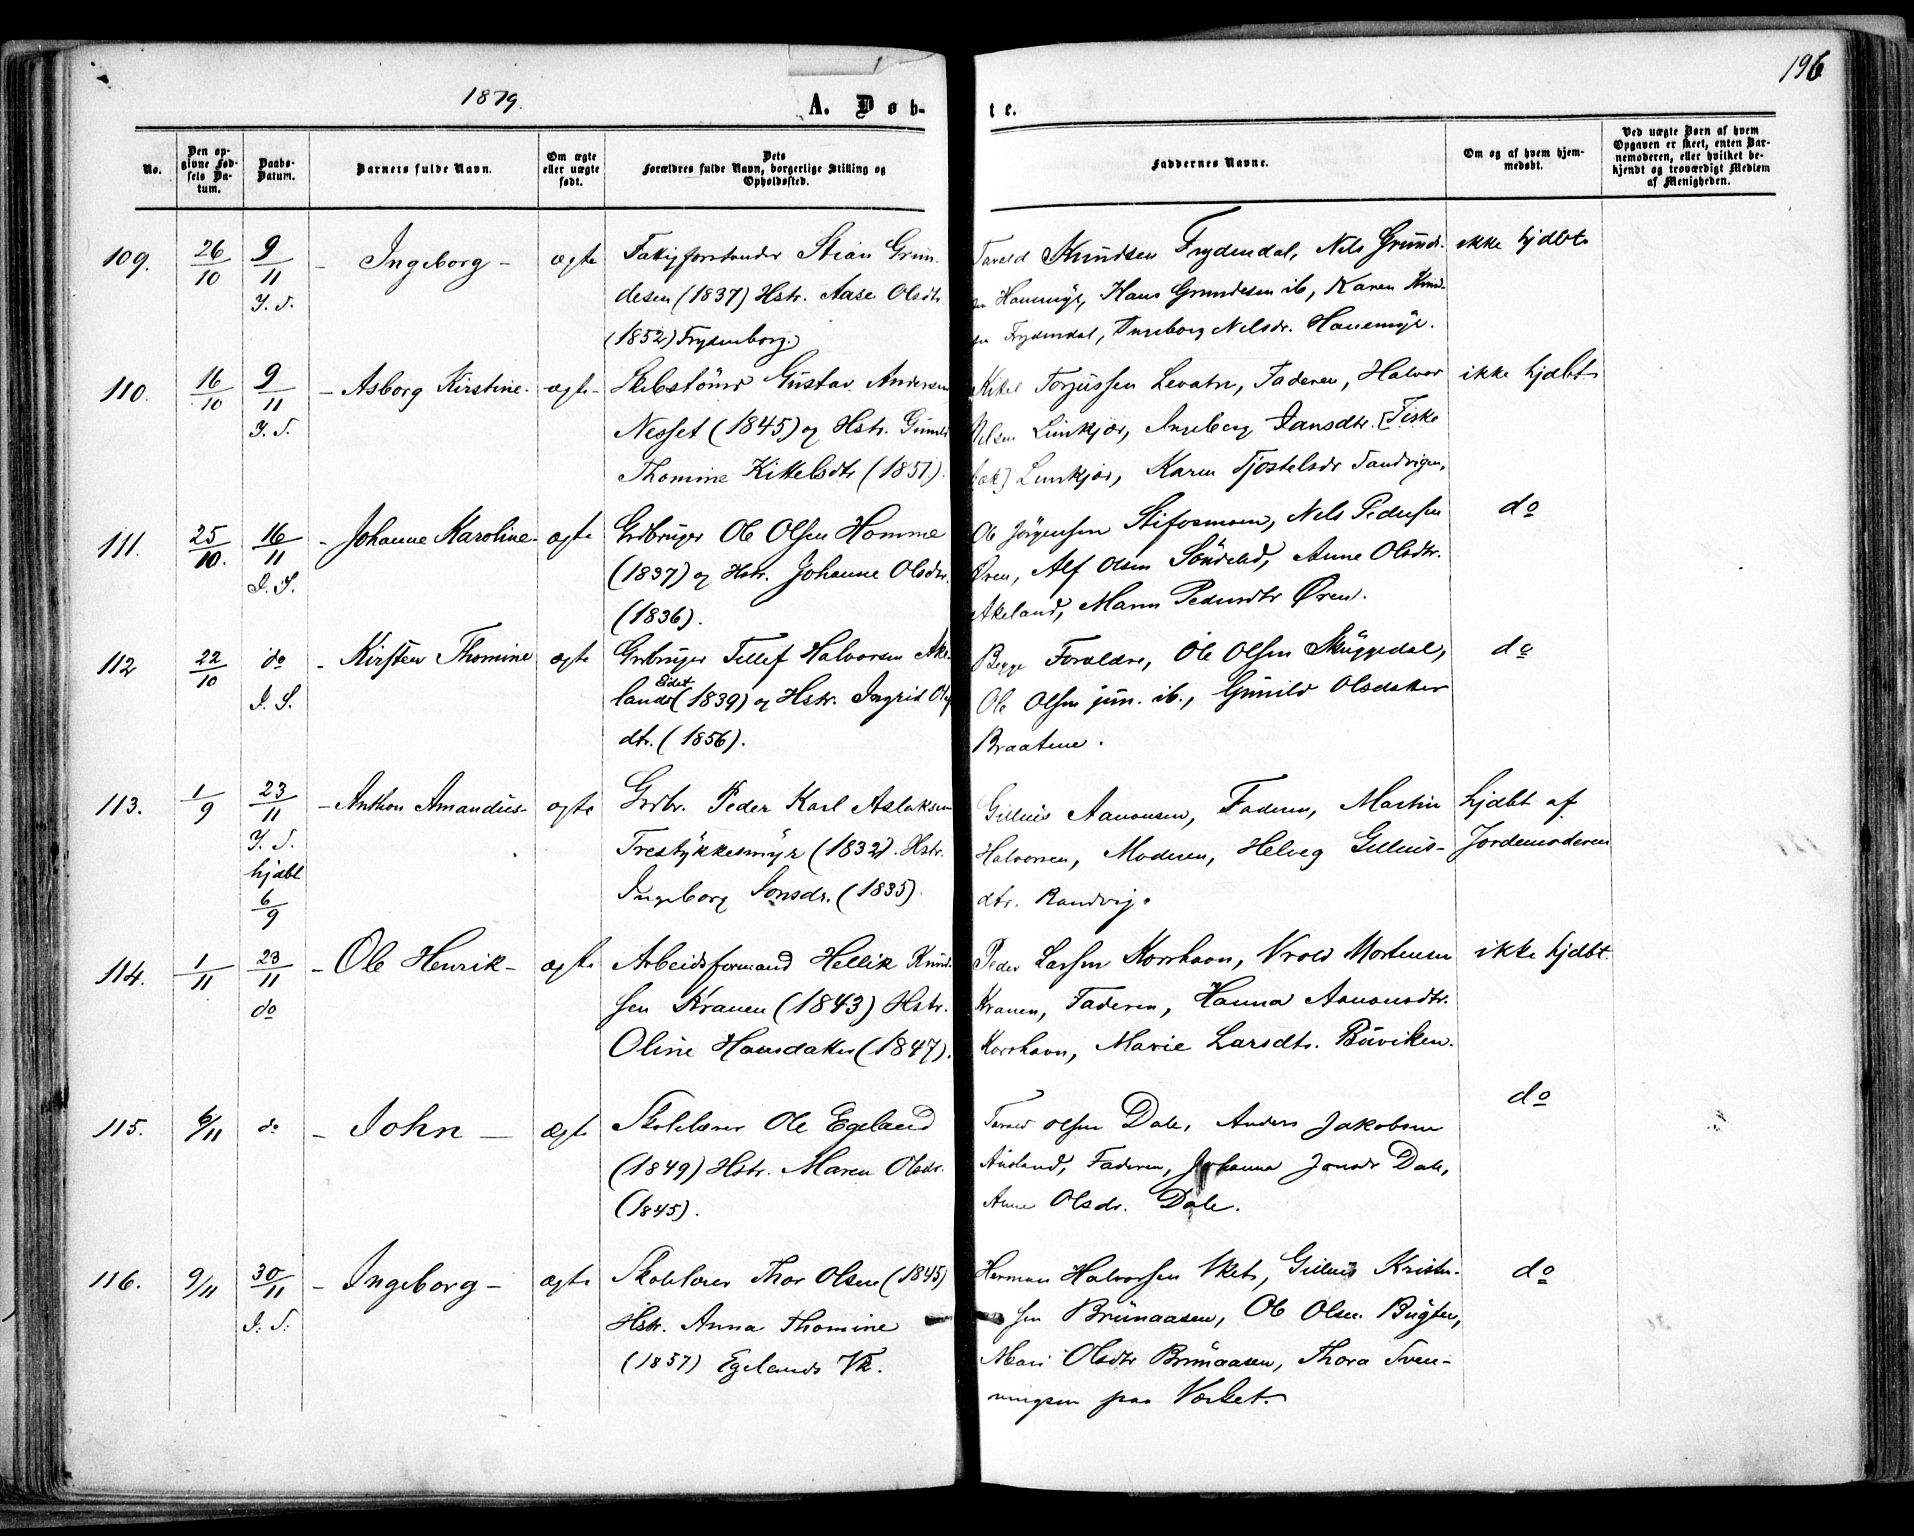 1879.
A. Døb-
te.
196
No.
Den op-
givne Fød-
sels Da-
tum.
Daabs-
Datum.
Barnets fulde Navn.
Om ægte
eller uægte
født.
Dets
Forældres fulde Navn, borgerlige Stilling og
Opholdssted.
Faddernes Navne.
Om og af hvem hjem-
medøbt.
Ved uægte Børn af hvem
Opgaven er skeet, enten Bar-
nemoderen, eller hvilket be-
kjendt og troværdigt Medlem
af Menigheden.
109. 26/10 9/11 – Ingeborg – ægte Fatigforstander Stian Grun-
desen (1837) Hstr. Aase Olsdtr
(1852) Frydenborg.
Tarald Knudsen Frydendal, Nils Grunde- ikke hjdbt
sen Hanemyr, Hans Grundesen ib, Karen Knud-
Frydendal, Ingeborg Nelsdr. Hanemyr.
110. 16/10 9/11 – Asborg Kirstine – ægte – Skibstømr Gustav Andersen
Nesset (1845) og Hstr. Gunild
Thomine Kittelsdtr (1851).
Kitel Torjussen Levatn, Faderen, Halvor ikke hjdbt
Nilsen Limkjær, Ingeborg Jansdtr. (Fiske
bæk) Limkjær, Karen Tjostelsdr Sandvigen,
111. 25/10. 16/11 – Johanne Karoline – ægte Grdbruger Ole Olsen Homme
(1837) og Hstr. Johanne Olsdtr.
(1836).
Ole Jörgensen Stifosmoen, Nels Pedersen do
Øren, Alf Olsen Söndeled, Anne Olsdtr.
Akeland, Maren Pedersdtr Øren.
112 22/10 do – Kirsten Thomine ægte Grbruger Tellef Halvorsen Ake-
lands Eidet (1839) og Hstr. Ingrid Ols
dtr. (1856).
Begge Forældre, Ole Olsen Skuggedal, do
Ole Olsen jun. ib., Gunild Olsdatter
Braatene.
113. 1/9 23/11 – Anthon Amandus – ægte Grdbr. Peder Karl Aslaksen
hjdbt
6/9
Trestykkesmyr (1832). Hstr.
Ingeborg Jonsdr. (1835).
Gillius Aanonsen, Faderen, Martin hjdbt af
Halvorsen, Moderen, Helveg Gillius- Jordemoderen
dtr. Randvig.
114. 1/11 23/11 – Ole Henrik – ægte Arbeidsformand Hellik Knud-
do
sen Kranen (1843) Hstr.
Oline Hansdatter (1847).
Peder Larsen Korshavn, Vrold Mortensen ikke hjdbt.
Kranen, Faderen, Hanna Aanonsdtr.
Korshavn, Marie Larsdtr. Buviken.
115. 6/11 do – John – ægte Skolelærer Ole Egeland
(1849) Hstr. Maren Olsdr.
(1845).
Tarald Olsen Dale, Anders Jakobsen do
Ausland, Faderen, Johanna Jonsdr Dale,
Anne Olsdr. Dale.
116. 9/11 30/11 – Ingeborg – ægte Skolelærer Thor Olsen (1845)
Hstr. Anna Thomine
(1857) Egelands Vk.
Herman Halvorsen Vket, Gillius Kristen-
sen Brunaasen, Ole Olsen Bugten,
Mari Olsdtr Brunaasen, Thora Sven-
ningsen paa Værket.